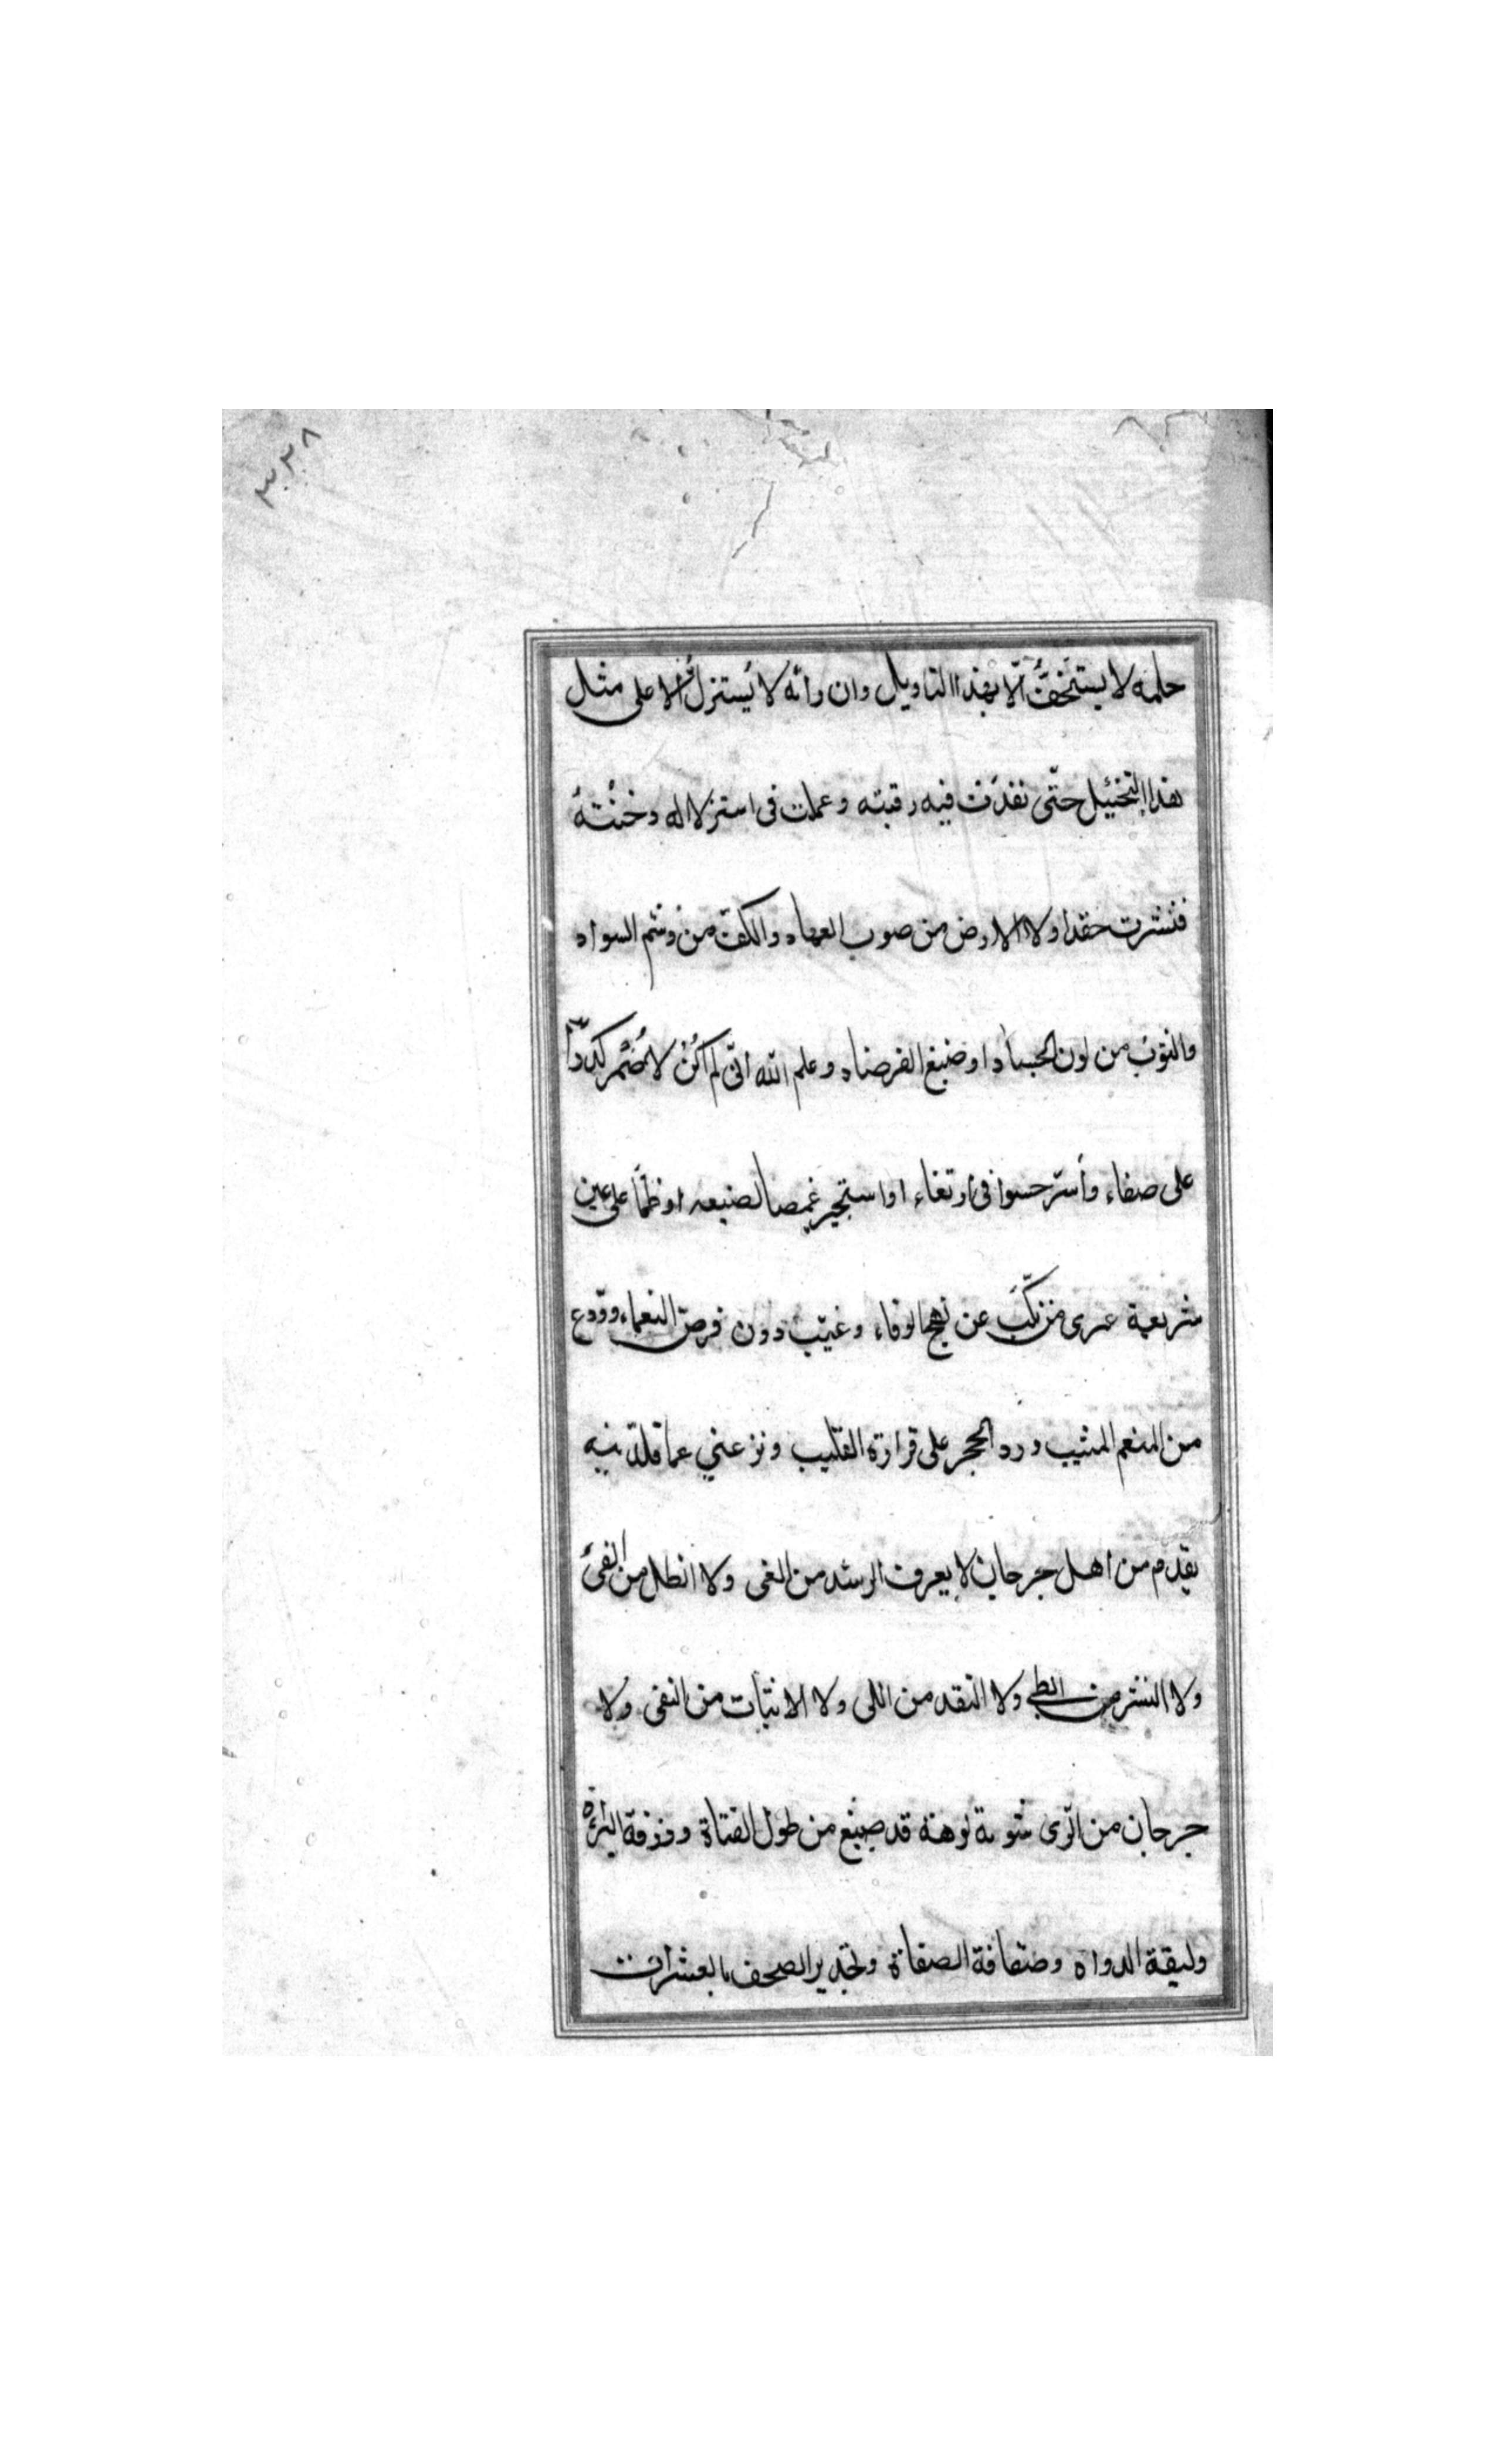 ٣٢٨
حلمه لا يستخفُّ الّا بهذا التاويل وان رانه لا يُستنزلُ الا على مثل
هذا التخييل حتّى نفذت فيه رقبته وعملت فى استنزلاله وخنته
فنشرت حقدا ولا الارض من صوب العهاد والكفّ من وشم السواد
والثوب من لون الجساد او ضبغ الفرصاد وعلم الله انّى لم اكن لاُضمر كدرًا
على صفاء وأسرّ حسوا فى ارتغاء او استجير غمصا لصنيعه او ظمًا على عين
شريعة غيرى من نكّب عن نهج الوفاء وغيّب دون فرض النعماء وودع
من المنعم المثيب ورد الحجر على قرارة القليب ونزعنى عما قلّدنيه
بقدم من اهل جرجان لا يعرف الرشد من الغى ولا الظل من الفئ
ولا النشر من الطى ولا النقد من اللى ولا الاثبات من النفى ولا
جرجان من الرّى قد صيغ من طول القناة
وليقة الدواه وصفافة الصفاة وتجدير الصحف بالعشرات